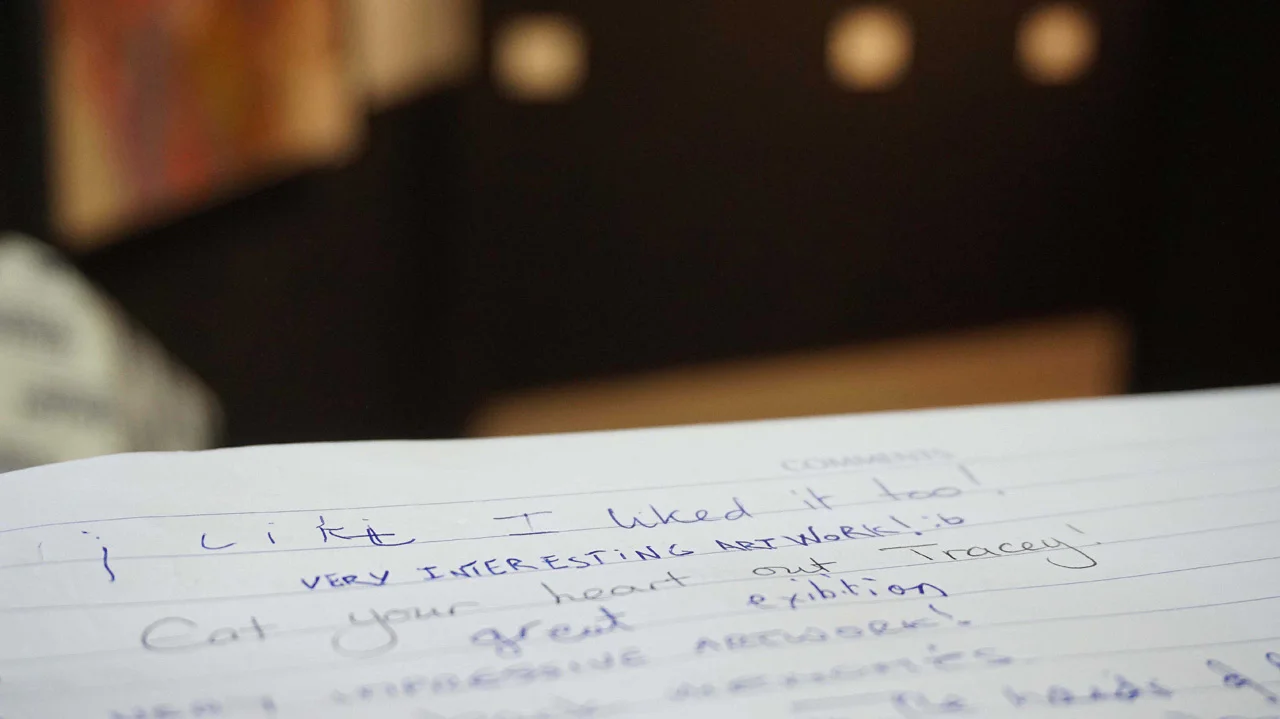 COMMENTS
I liked it too!
VERY INTERESTING ARTWORK! :b
Eat your heart out Tracey!
great exibition
VERY IMPRESSIVE ARTWORK!
MEMORIES
The hands of